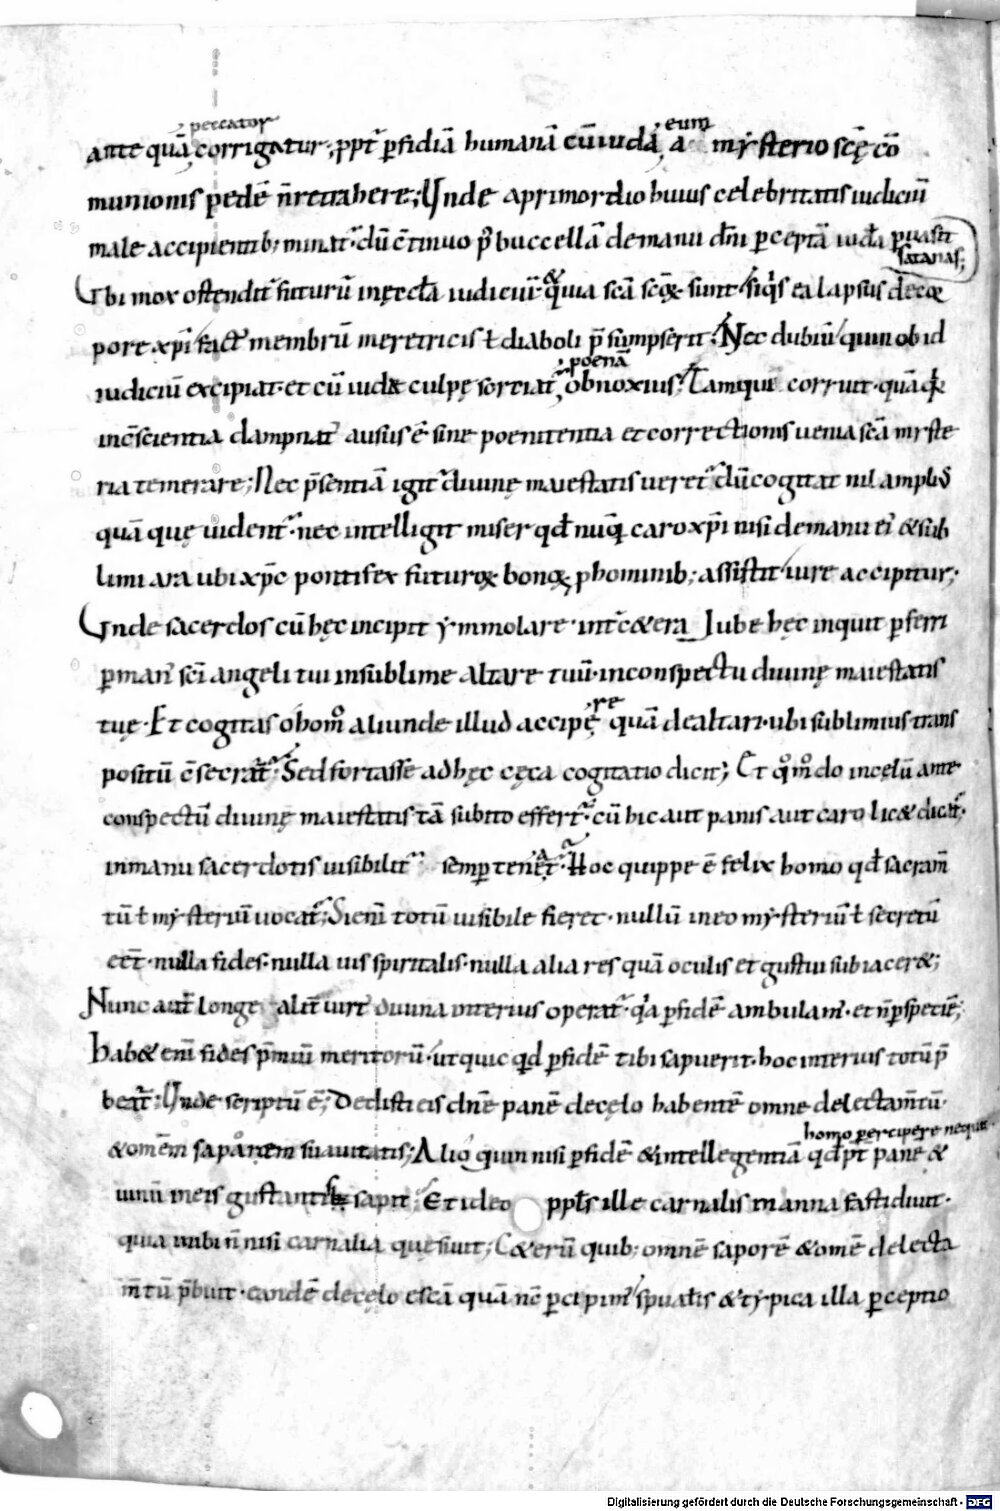 peccator eum
ante quā corrigatur, ppt̄ p̄fidiā humanā cū iuda, a mysterio scę̄ cō
munionis pedē n̄ retrahere; Unde a primordio huius celebritatis iudiciū
male accipientib; minat᷑ dū c̄tinuo p̄ buccellā de manu dn̄i p̄ceptā iudā puasit
satanas;
Ubi mox ostendit᷑ futurū in ęccl̄a iudiciū. quia scā scōꝝ sunt. siq̇s ea lapsus de cor
pore xp̄i fact᷑ membrū meretricis ł diaboli p̄sumpserit. Nec dubiū quin ob id
poenā
iudiciū excipiat. et cū iuda culpę sortiat᷑ obnoxius. Tamque corruit. quā
in c̄scientia dampnat᷑ ausus ē sine poenitentia et correctionis uenia scā myste
ria temerare; Nec p̄sentiā igit᷑ diuinę maiestatis ueret᷑ dū cogitat nil ampli᷒
quā quę uident᷑. nec intelligit miser qd̄ nūq̄ caro xp̄i nisi de manu ei᷒ & sub
limi ara ubi xp̄c pontifex futuroꝝ bonoꝝ p hominib; assistit iure accipitur;
Unde sacerdos cū hęc incipit ymmolare. int̄ c&era Iube hęc inquit pferri
p man᷒ sc̄i angeli tui in sublime altare tuū. in conspectu diuinę maiestatis
re
tuę. Et cogitas o homo aliunde illud accipe quā de altari. ubi sublimius trans
positū c̄secrat᷑. Sed fortasse ad hęc cęca cogitatio dicit; Et q̊m̊do in cęlū ante
conspectū diuinę maiestatis tā subito effert᷑. cū hic aut panis aut caro lic& dicat᷑.
in manu sacerdotis uisibilit᷑ semp teneat᷑. Hoc quippe ē felix homo qd̄ sacram̄
tū ł mysteriū uocat᷑; Si enī totū uisibile fieret. nullū in eo mysteriū ł secretū
eēt. nulla fides. nulla uis spiritalis. nulla alia res quā oculis et gustui subiacer&;
Nunc aut̄ longe alit᷑ uirt᷒ diuina interius operat᷑. q̇a p fidē ambulam᷒. et n̄ p speciē;
Hab& enī fides p̄miū meritorū. ut quic qd p fidē tibi sapuerit. hoc interius totū p̄
beat᷑; Unde scriptū ē; Dedisti eis dn̄e panē de cęlo habentē omne delectam̄tū.
homo percipere nequit
& omēm saporem suauitatis; Alioquin nisi p fidē & intellegentiā qd pt̄ pane &
uinū in eis gustantib; sapit. Et ideo ppl̄s ille carnalis manna fastidiuit.
quia in ubi n̄ nisi carnalia quęsiuit; C&erū quib; omnē saporē & omē delecta
m̄tū p̄buit. eandē de cęlo escā quā n̄c pcipim᷒ spualis & typica illa pceptio
Digitalisierung gefördert durch die Deutsche Forschungsgemeinschaft - DFG